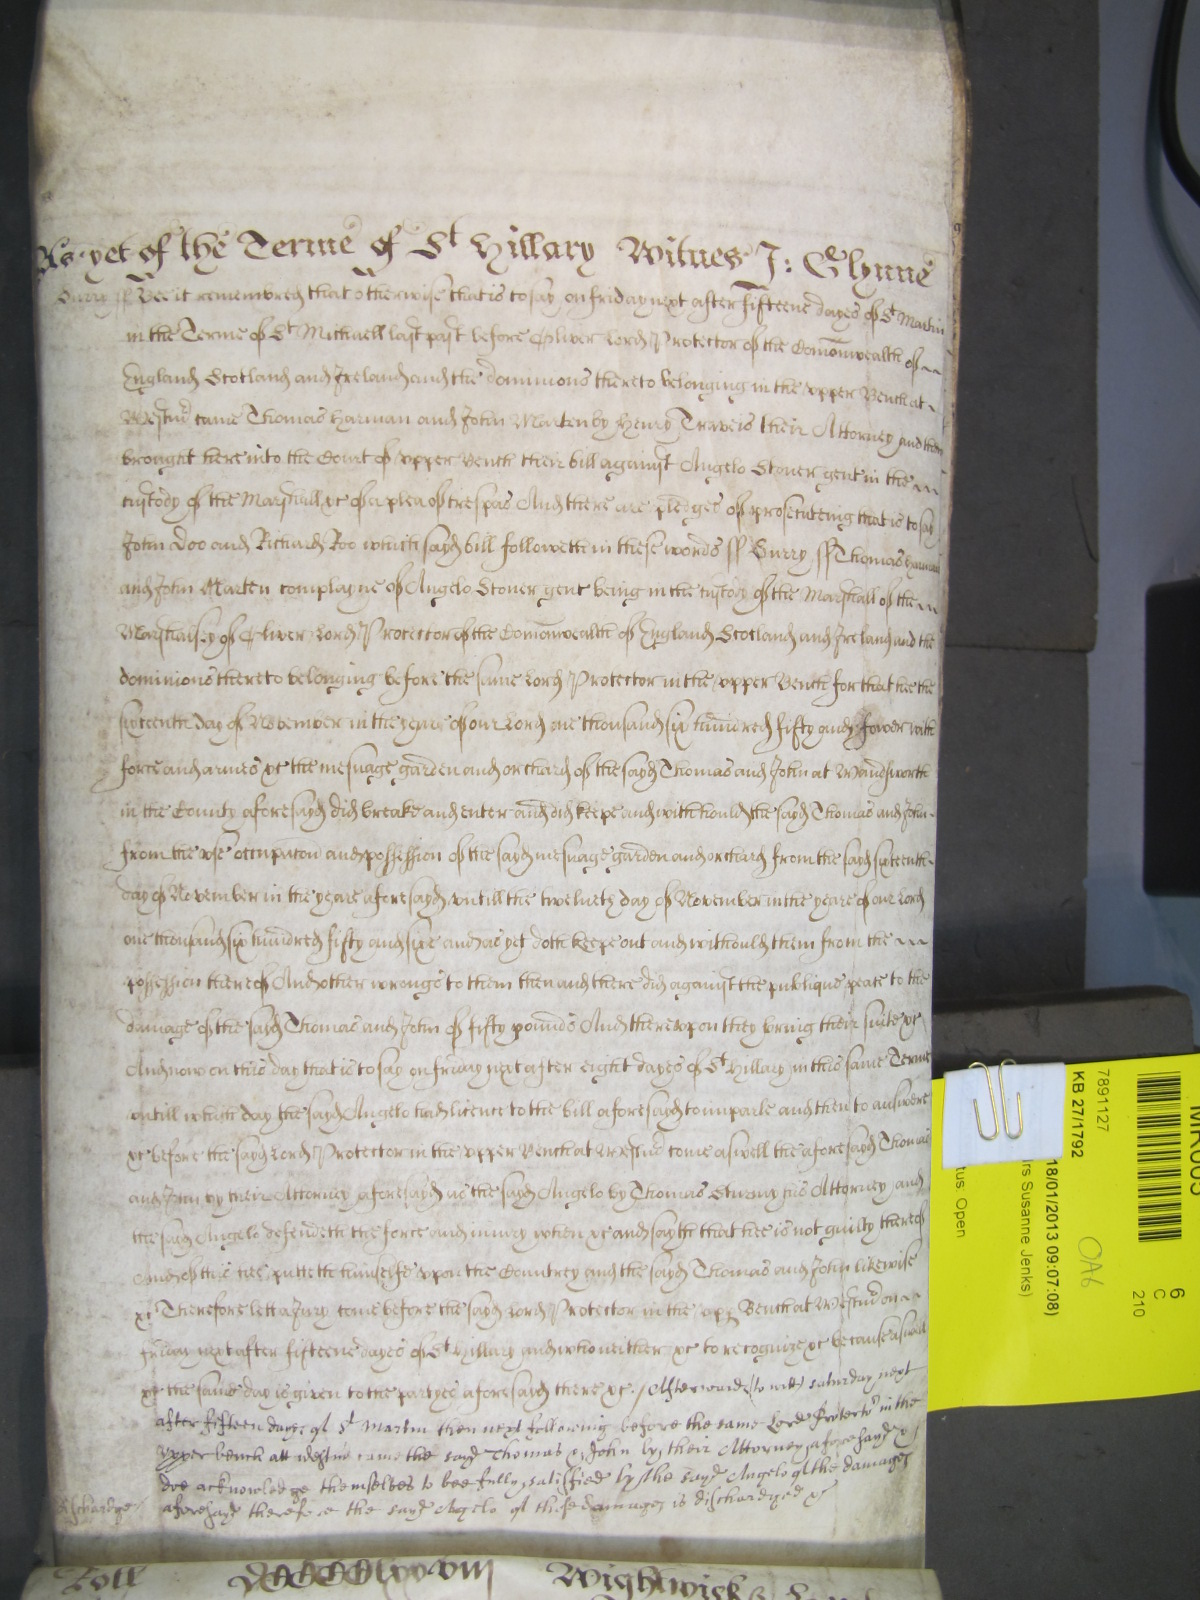 As yet of the Terme of St Hillary Witnes J: Glynne
Surry ss Bee it remembred that otherwise that is to say on friday next after fifteene dayes of St Martin
in the Terme of St Michaell last past before Oliver Lord Protector of the Comonwealth of
England Scotland and Ireland and the dominions thereto belonging in the upper Bench at
Westmr came Thomas Harman and John Marten by Henry Traveis their Attorney and then
brought here into the Court of upper Bench their bill against Angelo Stoner gent in the
custody of the Marshall &c of a plea of trespas And there are pledges of prosecuteing that is to say
John Doo and Richard Roo which sayd bill followeth in these words ss Surry ss Thomas Harman
and John Marten complayne of Angelo Stoner gent being in the custody of the Marshall of the
Marshalsey of Oliver Lord Protector of the Comonwealth of England Scotland and Ireland and the
dominions thereto belonging before the same Lord Protector in the upper Bench for that hee the
sixteenth day of November in the yeare of our Lord one thousand six hundred fifty and fower with
force and armes &c the mesuage garden and orchard of the sayd Thomas and John at Wandsworth
in the County aforesayd did breake and enter and did keepe and withhould the sayd Thomas and John
from the use occupacon and possession of the sayd mesuage garden and orchard from the sayd sixteenth
day of November in the yeare aforesayd untill the twelueth day of November in the yeare of our Lord
one thousand six hundred fifty and sixe and as yet doth keepe out and withould them from the
possession thereof And other wrongs to them then and there did against the publique peace to the
damage of the sayd Thomas and John of fifty pounds And thereupon they bring their suite &c
And now on this day that is to say on friday next after eight dayes of St Hillary in this same Terme
untill which day the sayd Angelo had licence to the bill aforesayd to imparle and then to answere
&c before the sayd Lord Protector in the upper Bench at Westmr come aswell the aforesayd Thomas
and John by their Attorney aforesayd as the sayd Angelo by Thomas Sturmy his Attorney and
the sayd Angelo defendeth the force and iniury when &c and sayth that hee is not guilty thereof
And of this hee putteth himselfe upon the Countrey and the sayd Thomas and John likewise
&c Therefore lett a Jury come before the sayd Lord Protector in the upp Bench at Westmr on
friday next after fifteene dayes of St Hillary and who neither &c to recognize &c because aswell
&c the same day is given to the partyes aforesayd there &c / Afterwards to witt saturday next
after fifteen dayes of St Martin then next following before the same Lord Protector in the
upper bench att westmr came the sayd Thomas & John by their Attorney aforesayd &
doe acknowledge themselves to bee fully satisfied by the sayd Angelo of the damages
Discharge aforesayd therefore the sayd Angelo of those damages is discharged &c
Roll
Wightwick &
7891127
KB 27/1792
18/01/2013 09:07:08)
rs Susanne Jenks)
tus Open
OA6
6
C
210